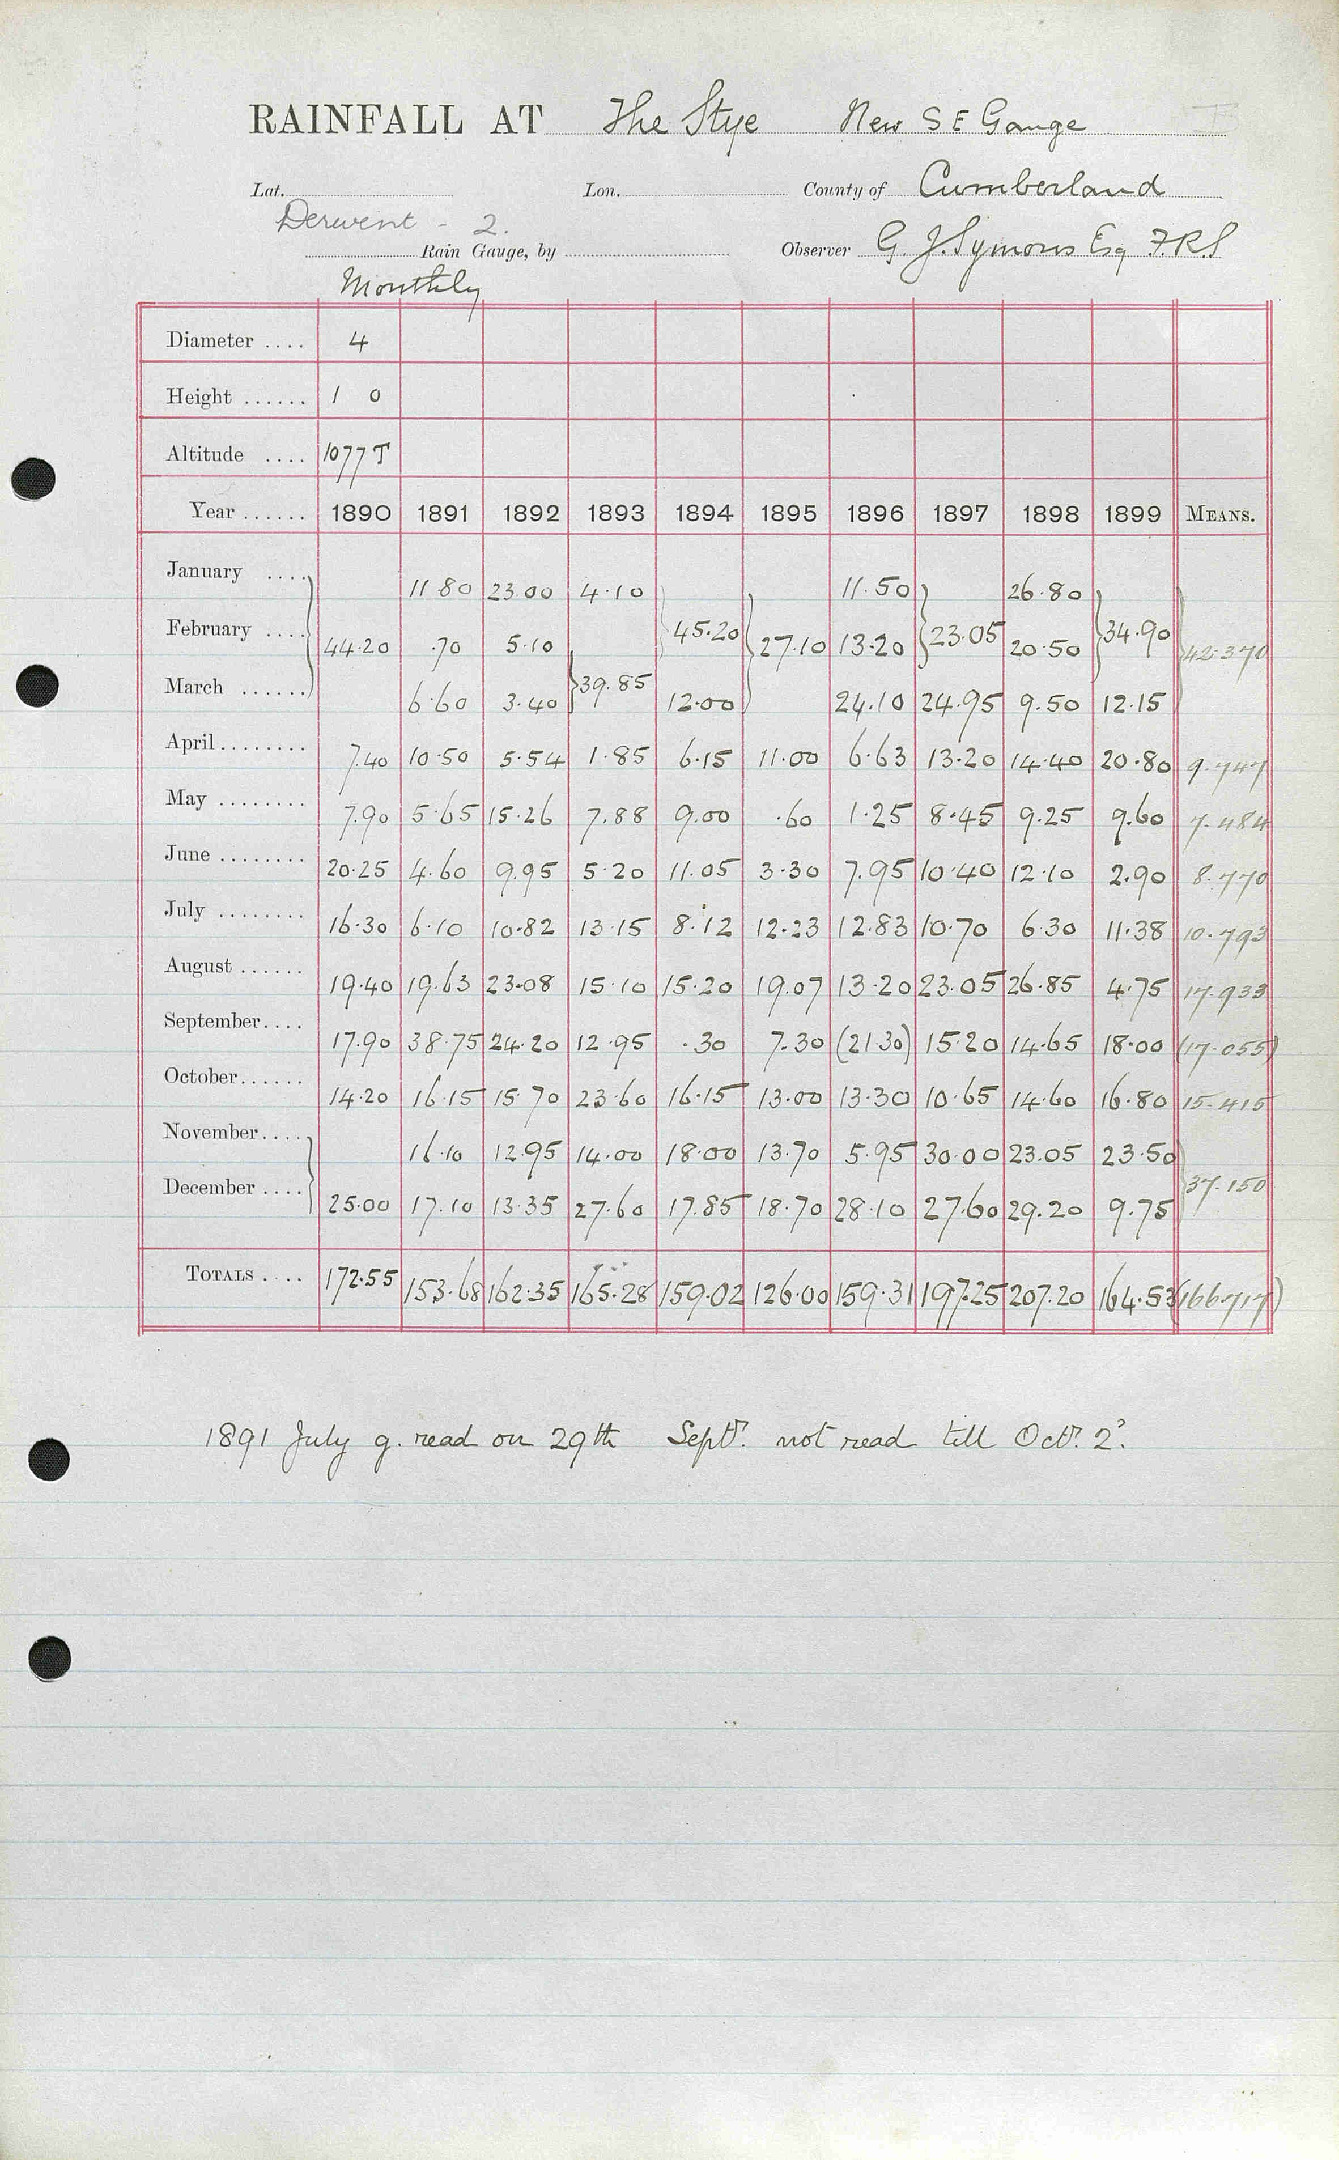 RAINFALL AT The Stye New S E Gauge
Lat. Lon. County of Cumberland
Derwent - 2.
Rain Gauge, by Observer G. J. Symons Esq F.R.S
Monthly
Diameter .... 4
Height ...... 1 0
Altitude .... 1077 T
Year ...... 1890 1891 1892 1893 1894 1895 1896 1897 1898 1899 MEANS.
January .... 11.80 23.00 4.10 11.50 26.80
February .... 44.20 .70 5.10 45.20 27.10 13.20 23.05 20.50 34.90 42.370
March ...... 6.60 3.40 39.85 12.00 24.10 24.95 9.50 12.15
April ........ 7.40 10.50 5.54 1.85 6.15 11.00 6.63 13.20 14.40 20.80 9.747
May ........ 7.90 5.65 15.26 7.88 9.00 .60 1.25 8.45 9.25 9.60 7.484
June ........ 20.25 4.60 9.95 5.20 11.05 3.30 7.95 10.40 12.10 2.90 8.770
July ........ 16.30 6.10 10.82 13.15 8.12 12.23 12.83 10.70 6.30 11.38 10.793
August ...... 19.40 19.63 23.08 15.10 15.20 19.07 13.20 23.05 26.85 4.75 17.933
September .... 17.90 38.75 24.20 12.95 .30 7.30 (21.30) 15.20 14.65 18.00 (17.055)
October ...... 14.20 16.15 15.70 23.60 16.15 13.00 13.30 10.65 14.60 16.80 15.415
November .... 16.10 12.95 14.00 18.00 13.70 5.95 30.00 23.05 23.50
December .... 25.00 17.10 13.35 27.60 17.85 18.70 28.10 27.60 29.20 9.75 37.150
TOTALS .... 172.55 153.68 162.35 165.28 159.02 126.00 159.31 197.25 207.20 164.53 (166.717)
1891 July g. read on 29th Septr. not read till Octr. 2?